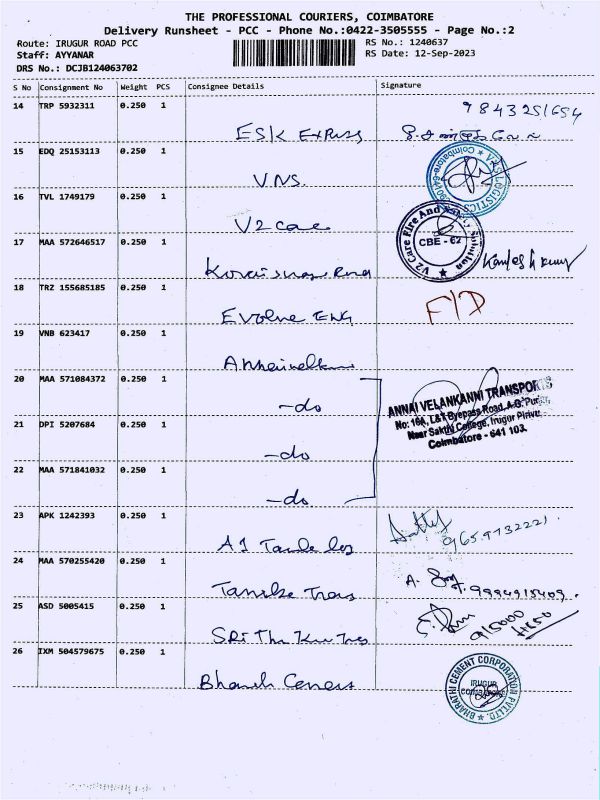 THE PROFESSIONAL COURIERS, COIMBATORE
Delivery Runsheet - PCC - Phone No.:0422-3505555 - Page No.:2
Route: IRUGUR ROAD PCC
RS No.: 1240637
Staff: AYYANAR
RS Date: 12-Sep-2023
DRS No.: DCJB124063702
S No Consignment No Weight PCS Consignee Details Signature
14 TRP 5932311 0.250 1
9843251654
ESK Express
15 EDQ 25153113 0.250 1
VNS.
16 TVL 1749179 0.250 1
V2 Care
V2 Care Fire And Solution
CBE - 62
17 MAA 572646517 0.250 1
18 TRZ 155685185 0.250 1
F/D
Evolve ENG
19 VNB 623417 0.250 1
20 MAA 571084372 0.250 1
-do
ANNAI VELANKANNI TRANSPORTS
No: 16A, L&T Byepass Road, A.G. Pudur,
Near Sakthi College, Irugur Pirivu
Coimbatore - 641 103.
21 DPI 5207684 0.250 1
-do
22 MAA 571841032 0.250 1
-do
23 APK 1242393 0.250 1
24 MAA 570255420 0.250 1
25 ASD 5005415 0.250 1
26 IXM 504579675 0.250 1
BHARATHI CEMENT CORPORATION PVT.LTD.
IRUGUR
COIMBATORE